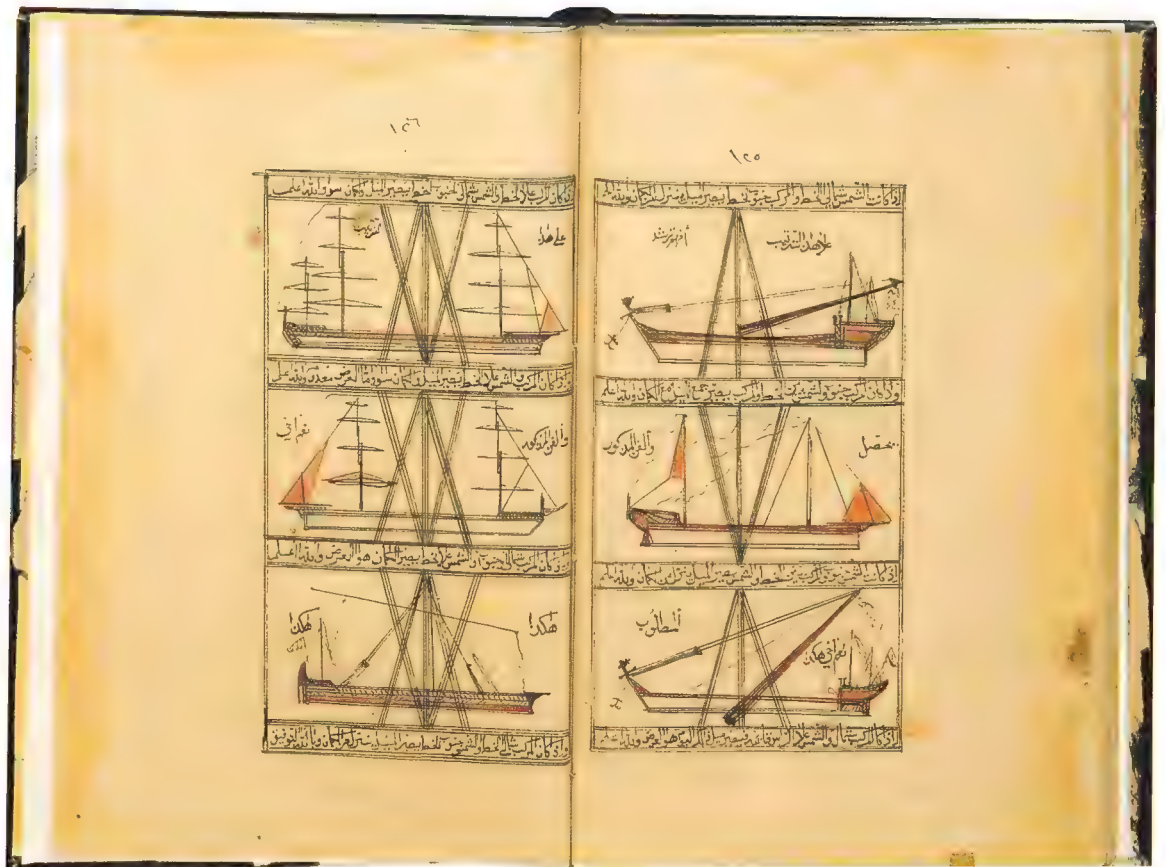 ١٢٥
اذا كانت الشمس شمالي الخط والمركب جنوبي الخط يصير الميل ينزل من الكمان والله اعلم
على هذا الترتيب
واذا كان المركب جنوبي والشمس بين الخط والمركب يصير الكمان والله اعلم
يحصل
والفن المذكور
اذا كانت الشمس جنوبي والمركب بين الخط والشمس يصير الميل ينزل من الكمان والله اعلم
المطلوب
نعم اخي هكذا
اذا كان المركب شمال والشمس على الراس هو العرض والله اعلم
١٢٦
كان المركب على الخط والشمس شمالي او جنوبي الخط يصير الميل والكمان سوى والله اعلم
على هذا
الترتيب
كان المركب والشمس على الخط يصير الميل والكمان سوى والعرض معدوم والله اعلم
والفن المذكور
نعم اخي
كان المركب شمالي او جنوبي والشمس على الخط يصير الكمان هو العرض والله اعلم
هكذا
هكذا
واذا كان المركب شمالي الخط والشمس جنوبي الخط يصير الميل ينزل من الكمان وبالله التوفيق